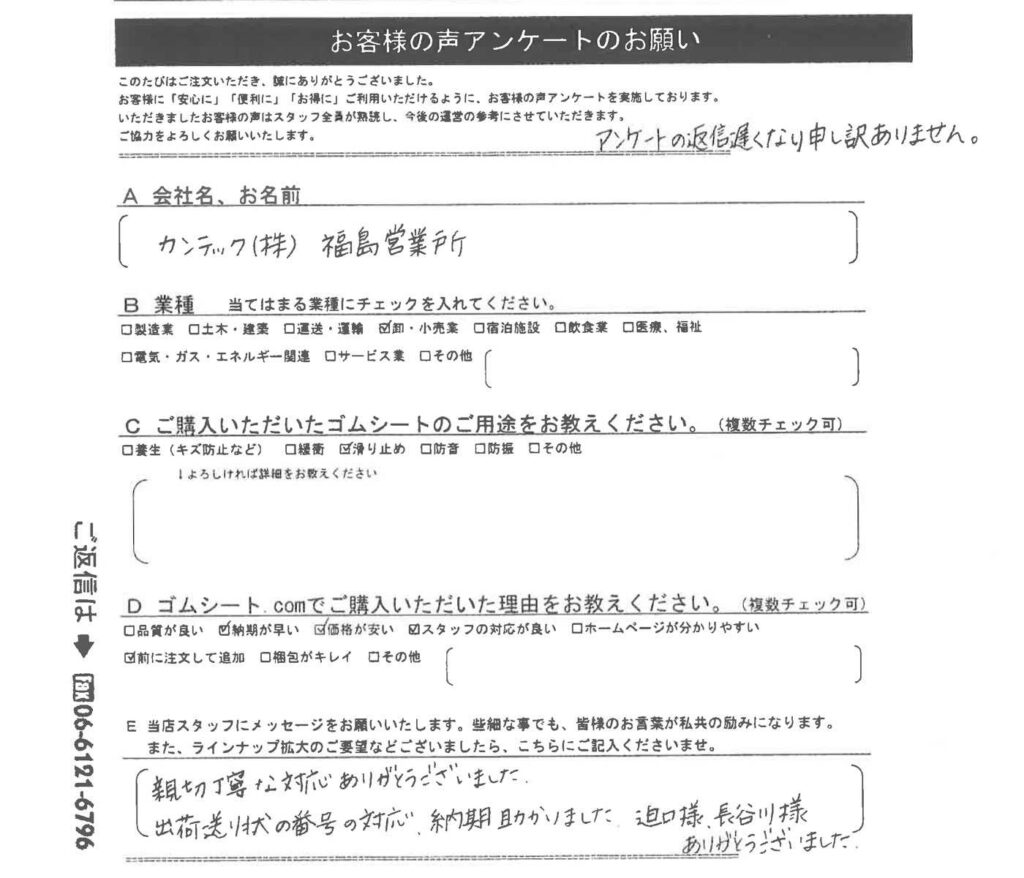 お客様の声アンケートのお願い
このたびはご注文いただき、誠にありがとうございました。
お客様に「安心に」「便利に」「お得に」ご利用いただけるように、お客様の声アンケートを実施しております。
いただきましたお客様の声はスタッフ全員が熟読し、今後の運営の参考にさせていただきます。
ご協力をよろしくお願いいたします。
アンケートの返信遅くなり申し訳ありません。
A 会社名、お名前
カンテック(株) 福島営業所
B 業種 当てはまる業種にチェックを入れてください。
□製造業 □土木・建築 □運送・運輸 ☑卸・小売業 □宿泊施設 □飲食業 □医療、福祉
□電気・ガス・エネルギー関連 □サービス業 □その他
C ご購入いただいたゴムシートのご用途をお教えください。(複数チェック可)
□養生(キズ防止など) □緩衝 ☑滑り止め □防音 □防振 □その他
↓よろしければ詳細をお教えください
D ゴムシート.comでご購入いただいた理由をお教えください。(複数チェック可)
□品質が良い ☑納期が早い ☑価格が安い ☑スタッフの対応が良い □ホームページが分かりやすい
☑前に注文して追加 □梱包がキレイ □その他
E 当店スタッフにメッセージをお願いいたします。些細な事でも、皆様のお言葉が私共の励みになります。
また、ラインナップ拡大のご要望などございましたら、こちらにご記入くださいませ。
親切丁寧な対応ありがとうございました.
出荷送り状の番号の対応、納期助かりました. 迫口様、長谷川様
ありがとうございました.
ご返信は➡FAX06-6121-6796